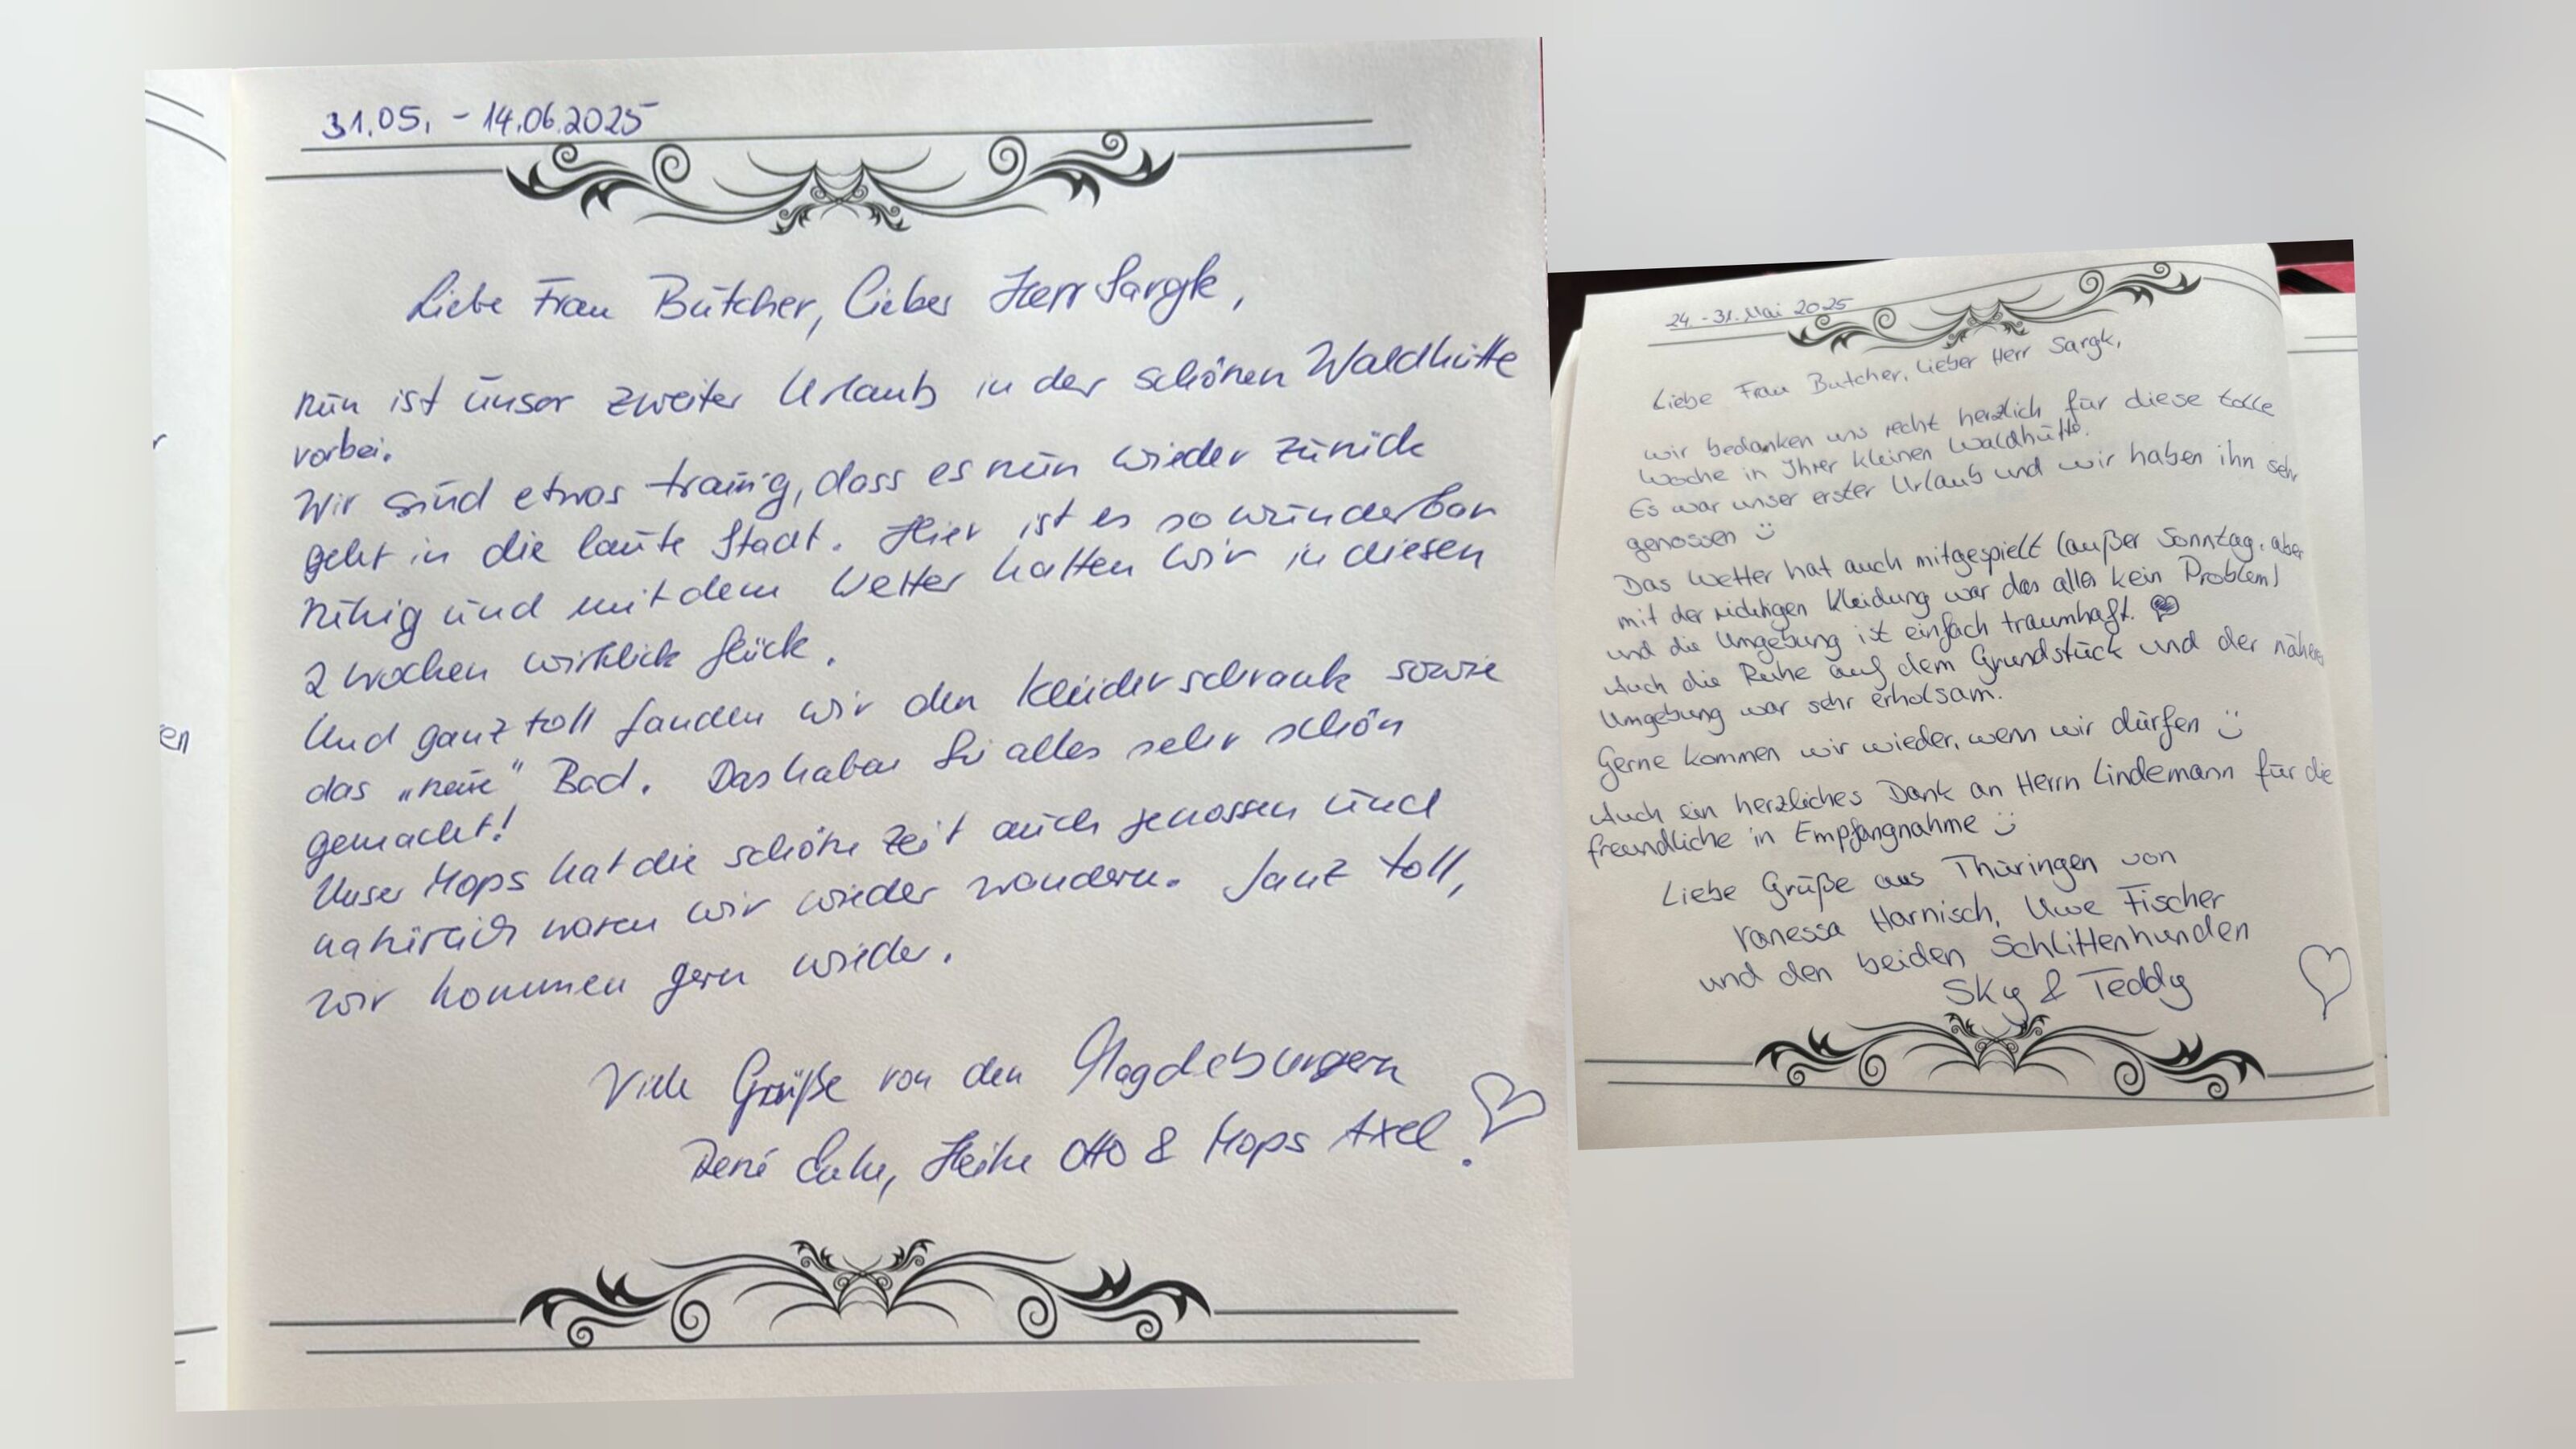 31.05. - 14.06.2025
Liebe Frau Butcher, Lieber Herr Sargk,
nun ist unser zweiter Urlaub in der schönen Waldhütte
vorbei.
Wir sind etwas traurig, dass es nun wieder zurück
geht in die laute Stadt. Hier ist es so wunderbar
ruhig und mit dem Wetter hatten wir in diesen
2 Wochen wirklich Glück.
Und ganz toll fanden wir den Kleiderschrank sowie
das „neue" Bad. Das haben Sie alles sehr schön
gemacht!
Unser Mops hat die schöne Zeit auch genossen und
natürlich waren wir wieder wandern. Ganz toll,
wir kommen gern wieder.
Viele Grüße von den Magdeburgern
René Heike Otto & Mops Axel!
en
24. - 31. Mai 2025
Liebe Frau Butcher, Lieber Herr Sargk,
wir bedanken uns recht herzlich für diese tolle
Woche in Ihrer kleinen Waldhütte.
Es war unser erster Urlaub und wir haben ihn sehr
genossen :)
Das Wetter hat auch mitgespielt (außer Sonntag, aber
mit der richtigen Kleidung war das alles kein Problem)
und die Umgebung ist einfach traumhaft. ♥
Auch die Ruhe auf dem Grundstück und der nähere
Umgebung war sehr erholsam.
Gerne kommen wir wieder, wenn wir dürfen :)
Auch ein herzliches Dank an Herrn Lindemann für die
freundliche in Empfangnahme :)
Liebe Grüße aus Thüringen von
Vanessa Harnisch, Uwe Fischer
und den beiden Schlittenhunden
Sky & Teddy